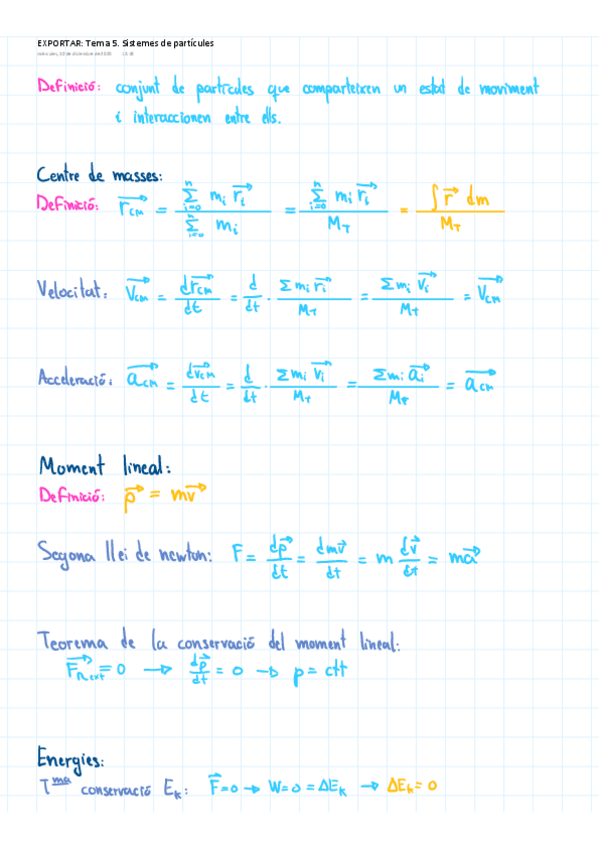 EXPORTAR: Tema 5. Sistemes de partícules
Definició: conjunt de partícules que comparteixen un estat de moviment
i interaccionen entre ells.
Centre de masses:
Definició: \vec{r_{CM}} = \frac{\sum_{i=0}^{n} m_i \vec{r_i}}{\sum_{i=0}^{n} m_i} = \frac{\sum_{i=0}^{n} m_i \vec{r_i}}{M_T} = \frac{\int \vec{r} dm}{M_T}
Velocitat: \vec{V_{CM}} = \frac{d\vec{r_{CM}}}{dt} = \frac{d}{dt} \cdot \frac{\sum m_i \vec{r_i}}{M_T} = \frac{\sum m_i \vec{V_i}}{M_T} = \vec{V_{CM}}
Acceleració: \vec{a_{CM}} = \frac{d\vec{v_{CM}}}{dt} = \frac{d}{dt} \cdot \frac{\sum m_i \vec{V_i}}{M_T} = \frac{\sum m_i \vec{a_i}}{M_T} = \vec{a_{CM}}
Moment lineal:
Definició: \vec{p} = m\vec{v}
Segona llei de newton: F = \frac{d\vec{p}}{dt} = \frac{dm\vec{v}}{dt} = m \frac{d\vec{v}}{dt} = m\vec{a}
Teorema de la conservació del moment lineal:
\vec{F_{R ext}} = 0 → \frac{d\vec{p}}{dt} = 0 → p = ctt
Energies:
T^{ma} conservació E_k: \vec{F} = 0 → W = 0 = ΔE_k → ΔE_k = 0